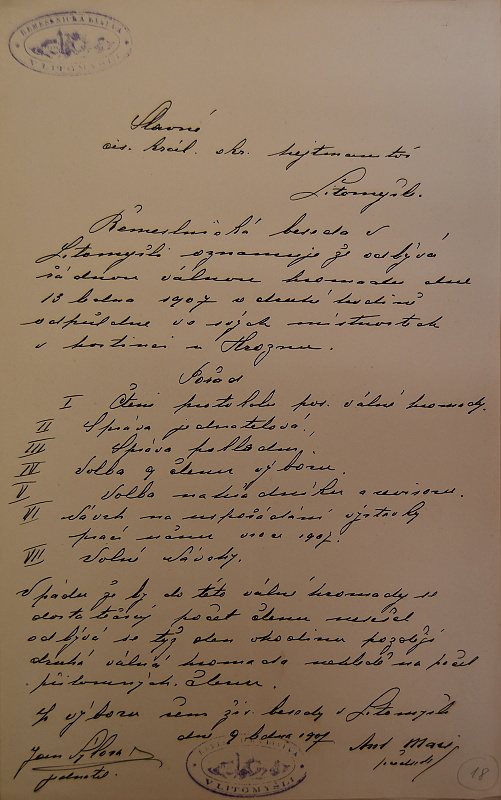 ŘEMESLNICKÁ BESEDA
V LITOMYŠLI
Slavné
cis. král. okr. hejtmanství
Litomyšl.
Řemeslnická beseda v
Litomyšli oznamuje že odbývá
řádnou válnou hromadu dne
13 ledna 1907 o druhé hodině
odpůldne ve svých místnostech
v hostinci u Hroznu.
Pořad
I Čtení protokolu pos. válné hromady.
II Správa jednatelova.
III Správa pokladní.
IV Volba 9 členu výboru.
V Volba náhradníku a revisoru.
VI Návrh na uspořádání výstavky
prací v roce 1907.
VII Volné návrhy.
V pádu že by do této válné hromady se
dostatečný počet členu nesešel
odbývá se týž den o hodinu později
druhá válná hromada nehledě na počet
přítomných členu.
Z výboru řem. živ. besedy v Litomyšli
dne 9 ledna 1907
Jan
jednatel.
Ant.
předseda
BESEDA
V LITOMYŠLI
18